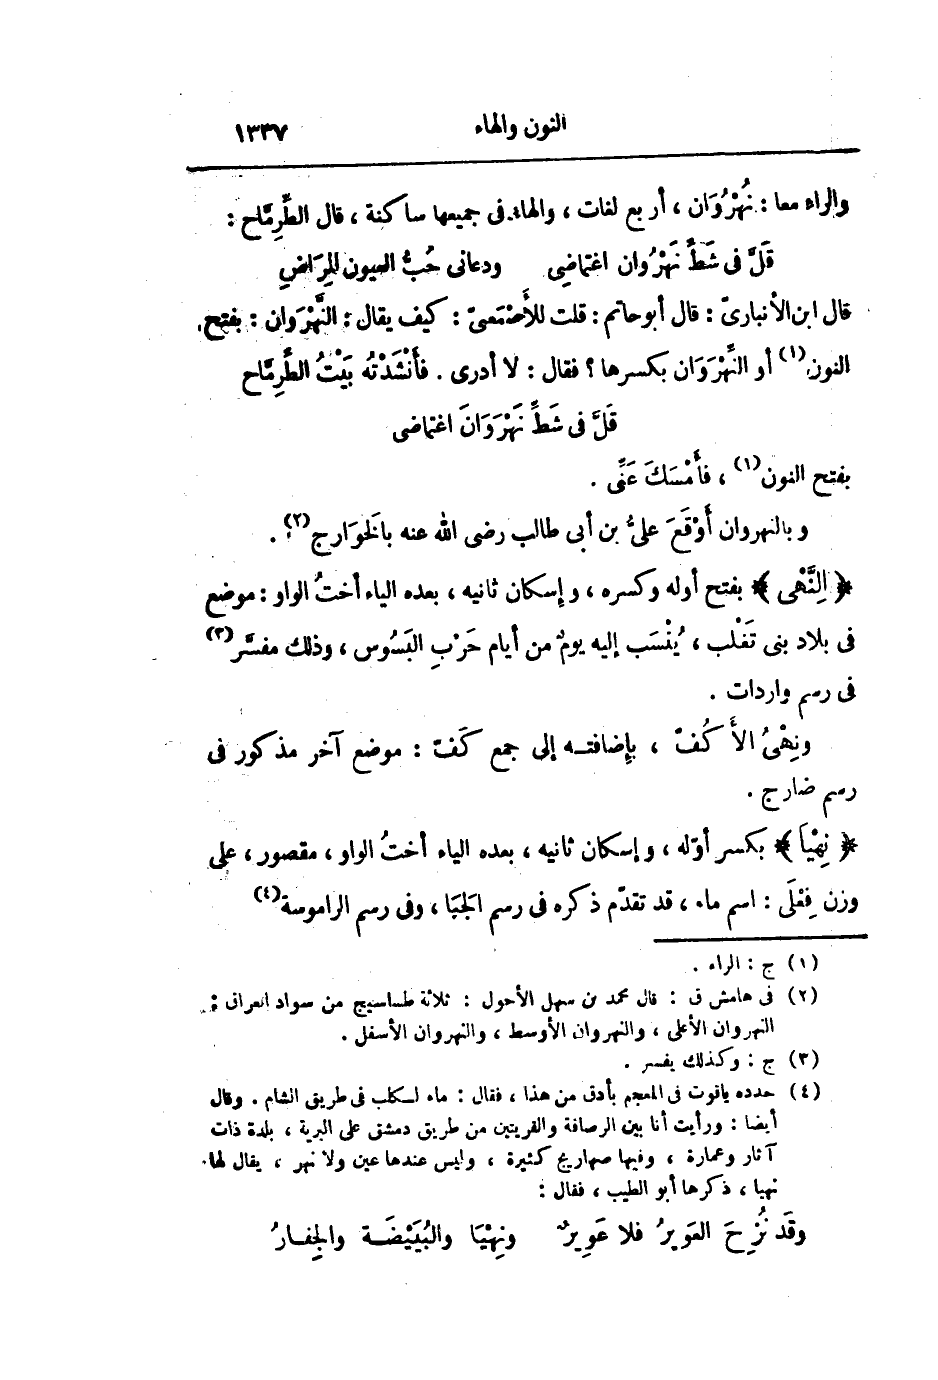 النون والهاء ١٣٣٧
والراء معا : نُهْرُوَان ، أربع لغات ، والهاء فى جميعها ساكنة ، قال الطِّرِمَّاح :
قَلَّ فى شَطِّ نَهْرُوان اغتماضِى ودعانى حُبُّ العيون المِرَاضِ
قال ابن الأنبارىّ : قال أبو حاتم : قلت للأَصْمَعىّ : كيف يقال : النَّهْرَوَان : بفتح
النون(١) أو النِّهْرَوَان بكسرها ؟ فقال : لا أدرى . فأَنْشَدْتُه بَيْتُ الطِّرِمَّاح
قَلَّ فى شَطِّ نَهْرَوَانَ اغتماضى
بفتح النون(١) ، فأَمْسَكَ عَنِّى .
وبالنهروان أَوْقَعَ علىُّ بن أبى طالب رضى الله عنه بالخَوَارج(٢) .
﴿ النَِّهْى ﴾ بفتح أوله وكسره ، وإسكان ثانيه ، بعده الياء أختُ الواو : موضع
فى بلاد بنى تَغْلب ، يُنْسَب إليه يومٌ من أيام حَرْبِ البَسُوس ، وذلك مفسَّر(٣)
فى رسم واردات .
ونِهْىُ الأَكُفّ ، بإضافته إلى جمع كَفّ : موضع آخر مذكور فى
رسم ضارج .
﴿ نِهْيَا ﴾ بكسر أوّله ، وإسكان ثانيه ، بعده الياء أختُ الواو ، مقصور ، على
وزن فِعْلَى : اسم ماء ، قد تقدّم ذكره فى رسم الجَبَا ، وفى رسم الراموسة(٤)
(١) ج : الراء .
(٢) فى هامش ق : قال محمد بن سهل الأحول : ثلاثة طساسيج من سواد العراق :
النهروان الأعلى ، والنهروان الأوسط ، والنهروان الأسفل .
(٣) ج : وكذلك يفسر .
(٤) حدده ياقوت فى المعجم بأدق من هذا ، فقال : ماء لكلب فى طريق الشام . وقال
أيضا : ورأيت أنا بين الرصافة والقريتين من طريق دمشق على البرية ، بلدة ذات
آثار وعمارة ، وفيها صهاريج كثيرة ، وليس عندها عين ولا نهر ، يقال لها
نهيا ، ذكرها أبو الطيب ، فقال :
وقَد نُزِحَ العَوِيرُ فلا عَوِيرٌ ونِهْيَا والبُيَيْضَة والجِفارُ